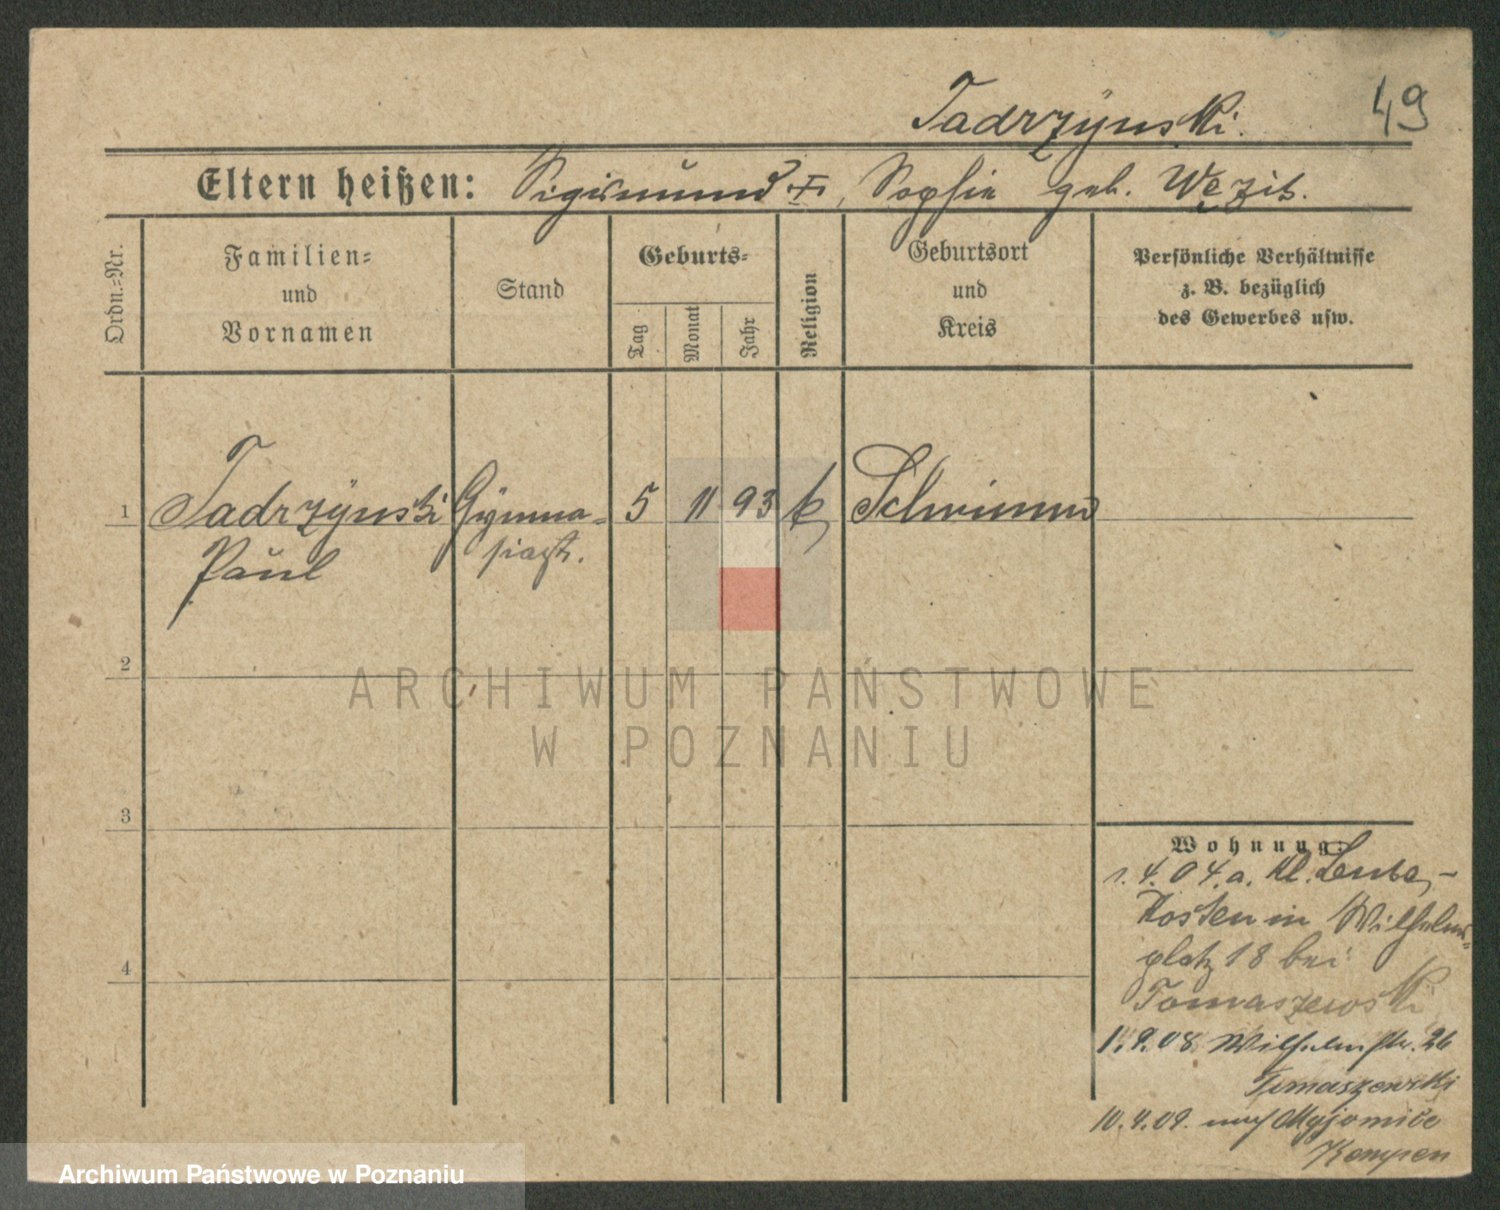 49
Tadrzynski.
Eltern heißen: Sigismund +, Sophie geb. Węzik.
Ordn.-Nr.
Familien-
und
Vornamen
Stand
Geburts-
Tag
Monat
Jahr
Religion
Geburtsort
und
Kreis
Persönliche Verhältnisse
z. B. bezüglich
des Gewerbes usw.
1 Tadrzynski Gymna- 5 11 93 k
Paul siast.
2
ARCHIWUM PAŃSTWOWE
W POZNANIU
3
Wohnung:
1.4.04. a. Kl.
Kosten in Wilhelms-
platz 18 bei
Tomaszewski
1.9.08 Wilhelmstr. 26
Tomaszewski
10.4.09. nach
Kempen
4
Archiwum Państwowe w Poznaniu